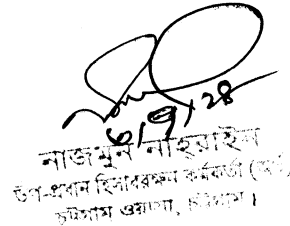 ৩/৭/২৪
নাজমুন নাহরাইন
উপ-প্রধান হিসাবরক্ষন কর্মকর্তা (অর্থ)
চট্টগ্রাম ওয়াসা, চট্টগ্রাম।